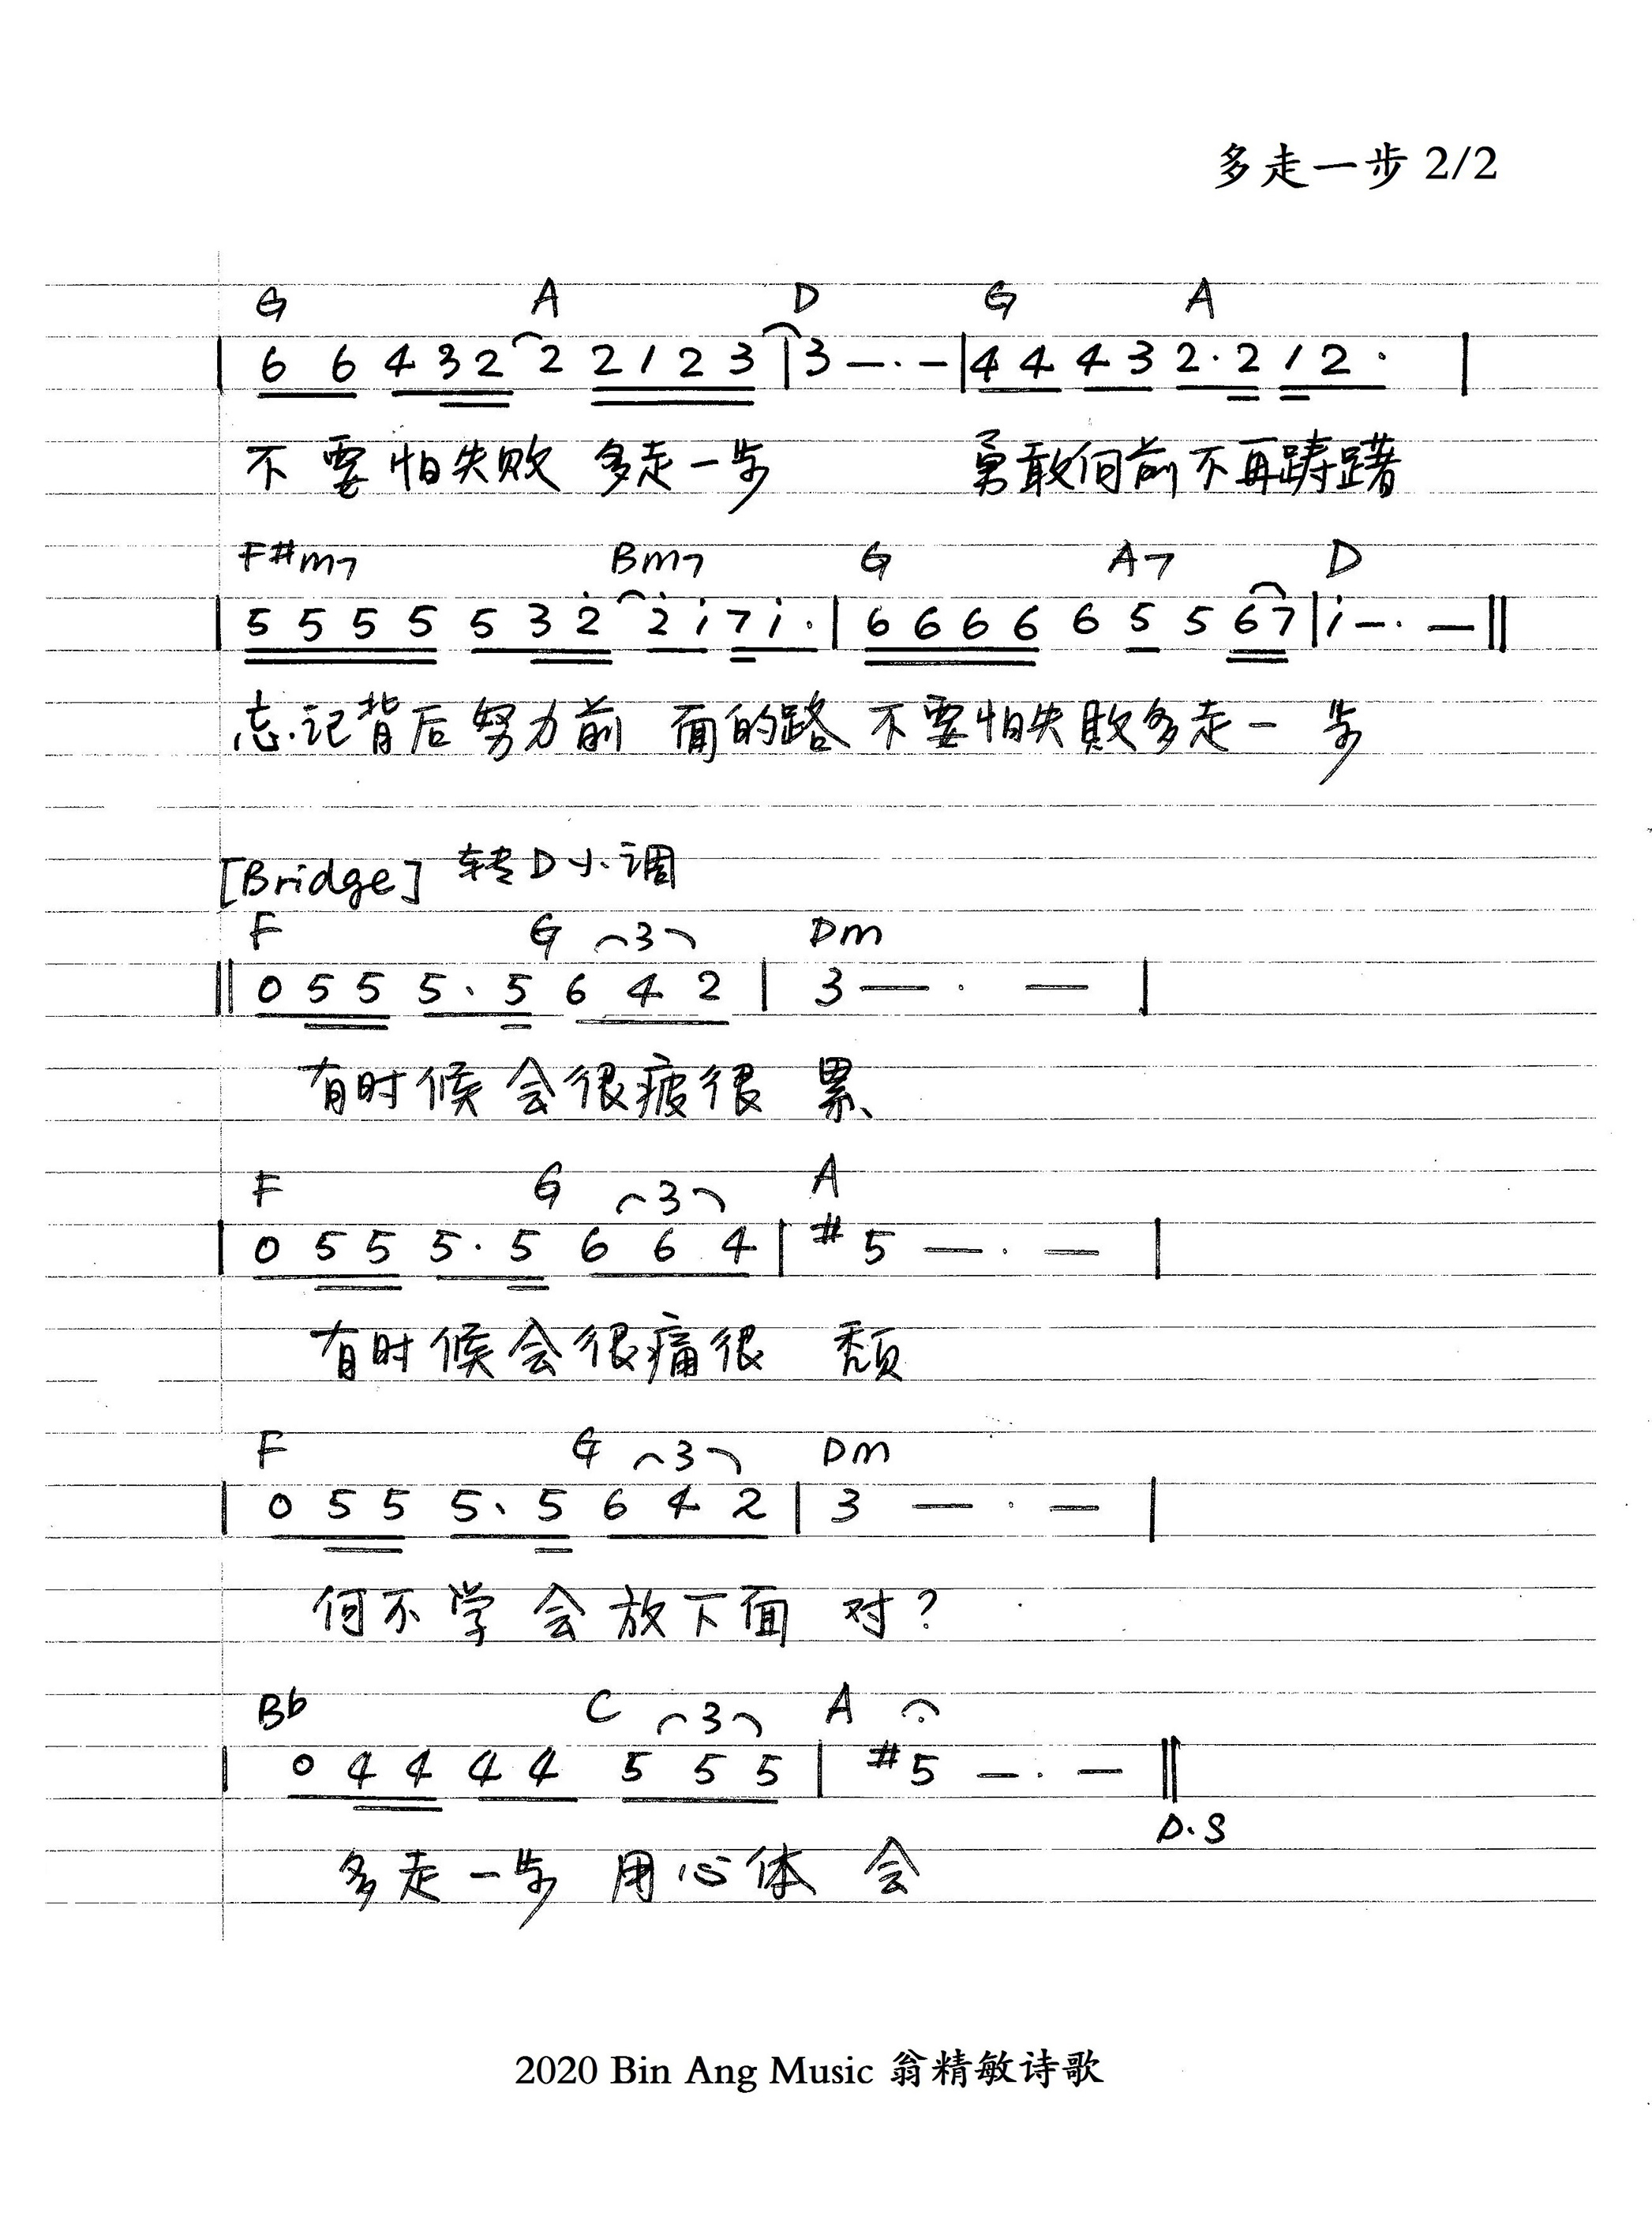 多走一步 2/2
G A D G A
| 6 6 4 3 2 2 2 1 2 3 | 3 — · — | 4 4 4 3 2 · 2 1 2 · |
不要怕失败 多走一步 勇敢向前不再踌躇
F#m7 Bm7 G A7 D
| 5 5 5 5 5 3 2̇ 2̇ i 7 i · | 6 6 6 6 6 5 5 6 7 | i — · — ||
忘记背后努力前 面的路 不要怕失敗多走一 步
[Bridge] 转D小调
F G 3 Dm
|| 0 5 5 5 · 5 6 4 2 | 3 — · — |
有时候会很疲很 累
F G 3 A
| 0 5 5 5 · 5 6 6 4 | #5 — · — |
有时候会很痛很 颓
F G 3 Dm
| 0 5 5 5 · 5 6 4 2 | 3 — · — |
何不学会放下面 对?
Bb C 3 A
| 0 4 4 4 4 5 5 5 | #5 — · — ||
D.S
多走一步 用心体 会
2020 Bin Ang Music 翁精敏诗歌